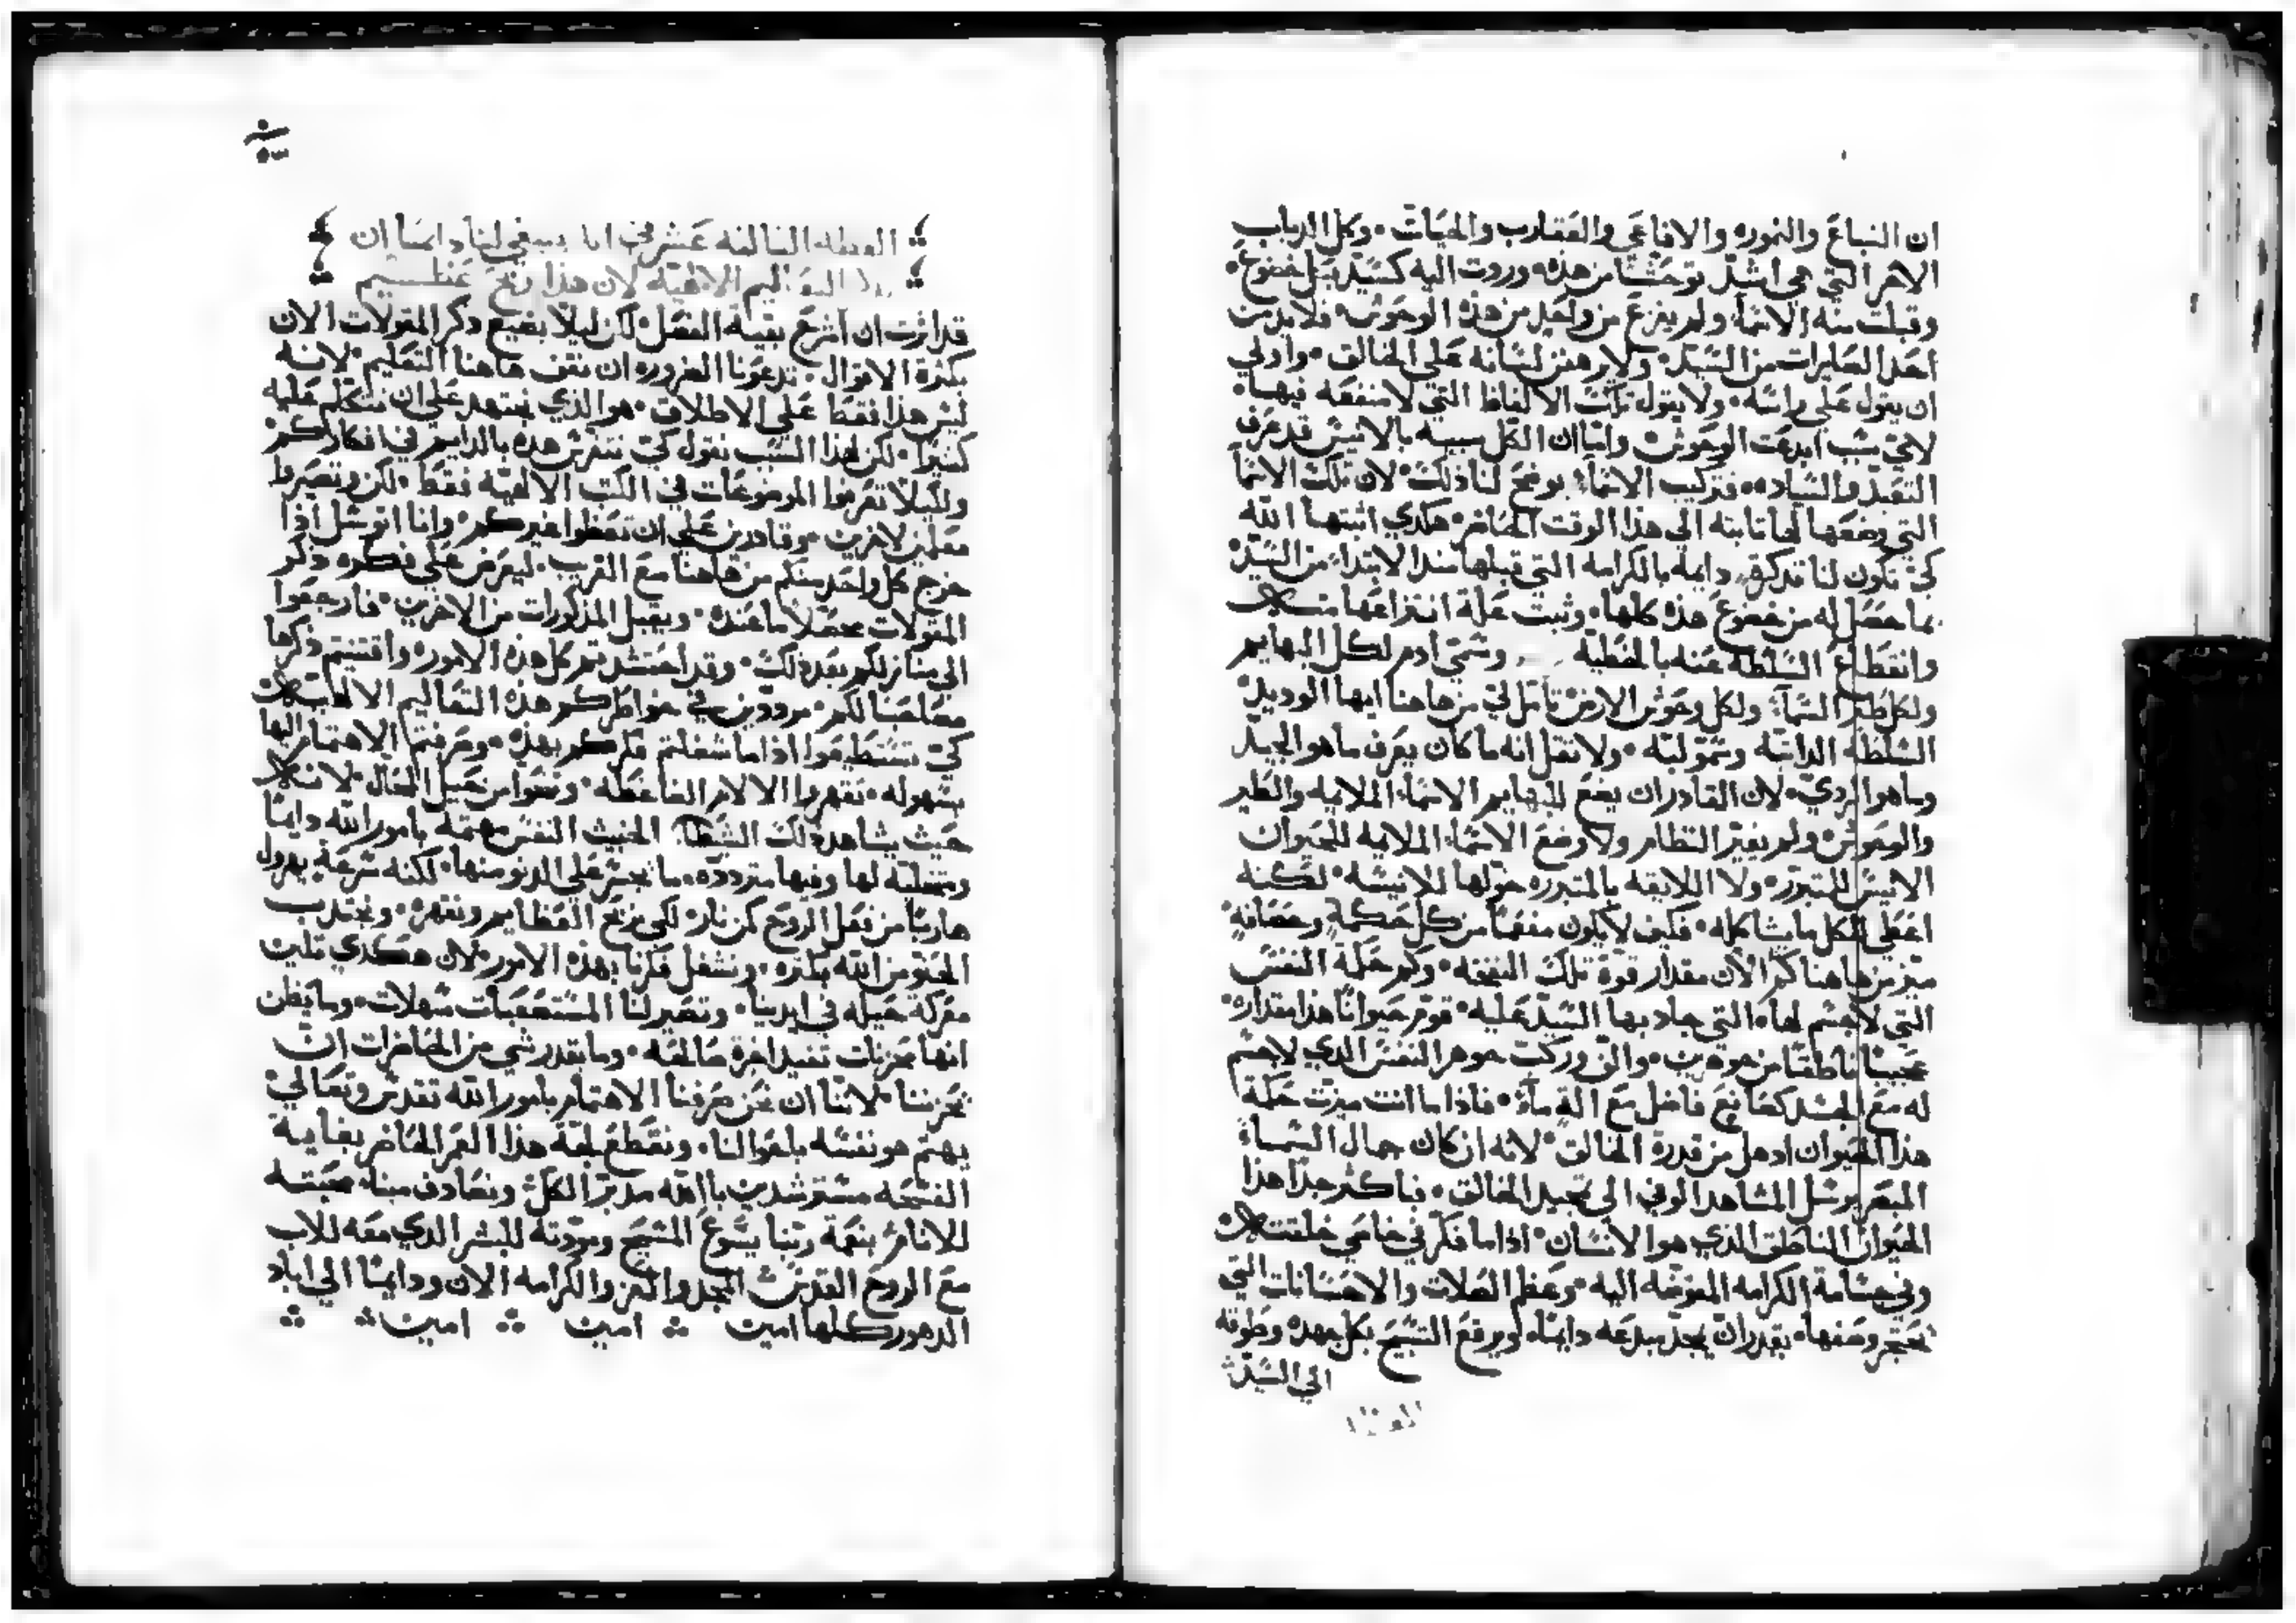 ان السباع والنموره والافاعي والعقارب والحيات وكل الدباب
الاخر التي هي اشد توحشا من هذه وردت اليه كسيد بكل خضوع
وقبلت منه الاسماء ولم يفزع من واحد من هذه الوحوش فلا يذمن
احد الصايرات من السيد ولا يرهفن لسانه على الخالق واولي
ان يقول على راسه ولا يقول تلك الالفاظ التي لا منفعه فيها
لاي سبب ابدعت الوحوش واما ان الكل سيبه بالانيس قد عرف
التعبد والسياده فتركيب الاسماء يوضح لنا ذلك لان تلك الاسما
التي وضعها لها ثابته الي هذا الوقت الحاضر هكدي اثبتها الله
كي تكون لنا تدكره دايمه بالكرامه التي قبلها مند الابتداء من السيد
بما حصل له من خضوع هذه كلها وثبت علة انتزاعها منه
وانقطاع السلطه عنه بالخطيه وسمي ادم لكل البهايم
ولكل طير السماء ولكل وحوش الارض تامل لي من هاهنا ايها الوديد
السلطه الداتيه وسمو لبه ولا تقل انه ما كان يعرف ما هو الجيد
وما هو الردي لان القادر ان يضع للبهايم الاسماء الملايمه والطير
والوحوش ولم يغير النظام ولا وضع الاسماء الملايمه للحيوان
الانيس للمتبرر ولا اللايقه بالمتبرره حولها للانيسه لكنه
اعطي الكل ما يشاكله فكيف لا يكون مفعما من كل حكمة وحصانة
ميز من هاهنا كم الان مقدار قوة تلك النفخه وكم حكمة النفس
التي لا جسم لها التي جاد بها السيد عليه قوم حيوانا هذا مقداره
عجيبا ناطقا من جوهرين والف وركب جوهر النفس الذي لا جسم
له مع الجسد كصانع فاضل مع الة ماة فاذا ما انت ميزت حكمة
هذا الحيوان ادهل من قدرة الخالق لانه ان كان جمال السماء
المبصر يرسل المشاهد الوفي الى تمجيد الخالق فبا كثر جدا هذا
الحيوان الناطق الذي هو الانسان اذا ما فكر في خاصي خلقته
وفي جسامة الكرامه المعوضه اليه وعظم الصلات والاحسانات التي
يعتجر وصفها يقدر ان يمجد مبدعه دايما ويرفع التسبيح بكل جهده وطوقه
الي السيد
العظه الثالثه عشر في انه ينبغي لنا دايما ان
التعاليم الالاهيه لان هذا ربح عظيم
قد اثرت ان انزع بقية الفصل لكن ليلا يضيع ذكر المقولات الان
بكثرة الاقوال تدعونا الضروره ان نقف هاهنا التعليم لانه
ليس هذا فقط على الاطلاق هو الذي نجتهد على ان نتكلم عليه
كثيرا لكن لهذا السبب نقول كي تنغرس هذه بالدايم في افكاركم
ولكيلا تعرفوا الموضوعات في الكتب الالهيه فقط لكن وتصيروا
معلمين لاخرين وقادرين علي ان تعظوا غيركم وانا اتوسل اذا
خرج كل واحد منكم من هاهنا مع القريب ليعرض علي فكره ذكر
المقولات محصلا ما عنده ويقبل المذكورات من الاخرين فارجعوا
الى منازلكم بعد ذلك وقد احتشدتم كل هذه الامور واقتنيتم ذكرها
مصاحبا لكم مرددين في خواطركم هذه التعاليم الالاهيه
كي تستطيعوا اذا ما شغلتم فكركم بهذه وصرفتم الاهتمام اليها
بسهوله تقهروا الالام الضاغطه وتنجوا من حيل المحال لانه
حيث يشاهد ذلك الشيطان الخبيث النفس مهتمة بامور الله دايما
ومتخليه لها وفيها متردده ما يجسر على الدنو منها لكنه سرعة يهرول
هاربا من فعل الروح كمن نار لكي نربح العظايم ونقهره ونجتدب
الحنو من الله بكثره ونشغل فكرنا بهذه الامور لان هكدي تلين
معركة حيله في ايدينا وتصير لنا المستصعبات سهلات وما يظن
انها محزنات تفيد اخرة صالحه وما يقدر شي من الحاضرات ان
يحزننا لاننا ان نحن صرفنا الاهتمام بامور الله تقدس وتعالي
يهتم هو نفسه باحوالنا ونقطع لجة هذا العمر الحاضر بغاية
الفسحه مسترشدين بالله مدبر الكل ونصادف مينا محبته
للانام بنعمة ربنا يسوع المسيح ومودته للبشر الذي معه للاب
مع الروح القدس المجد والعز والكرامه الان ودايما الي اباد
الدهور كلها امين امين امين